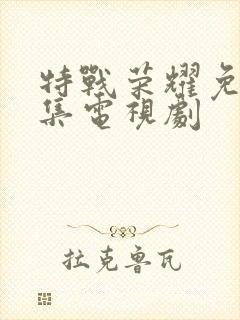 特戰荣耀免
集電視劇
拉克鲁瓦